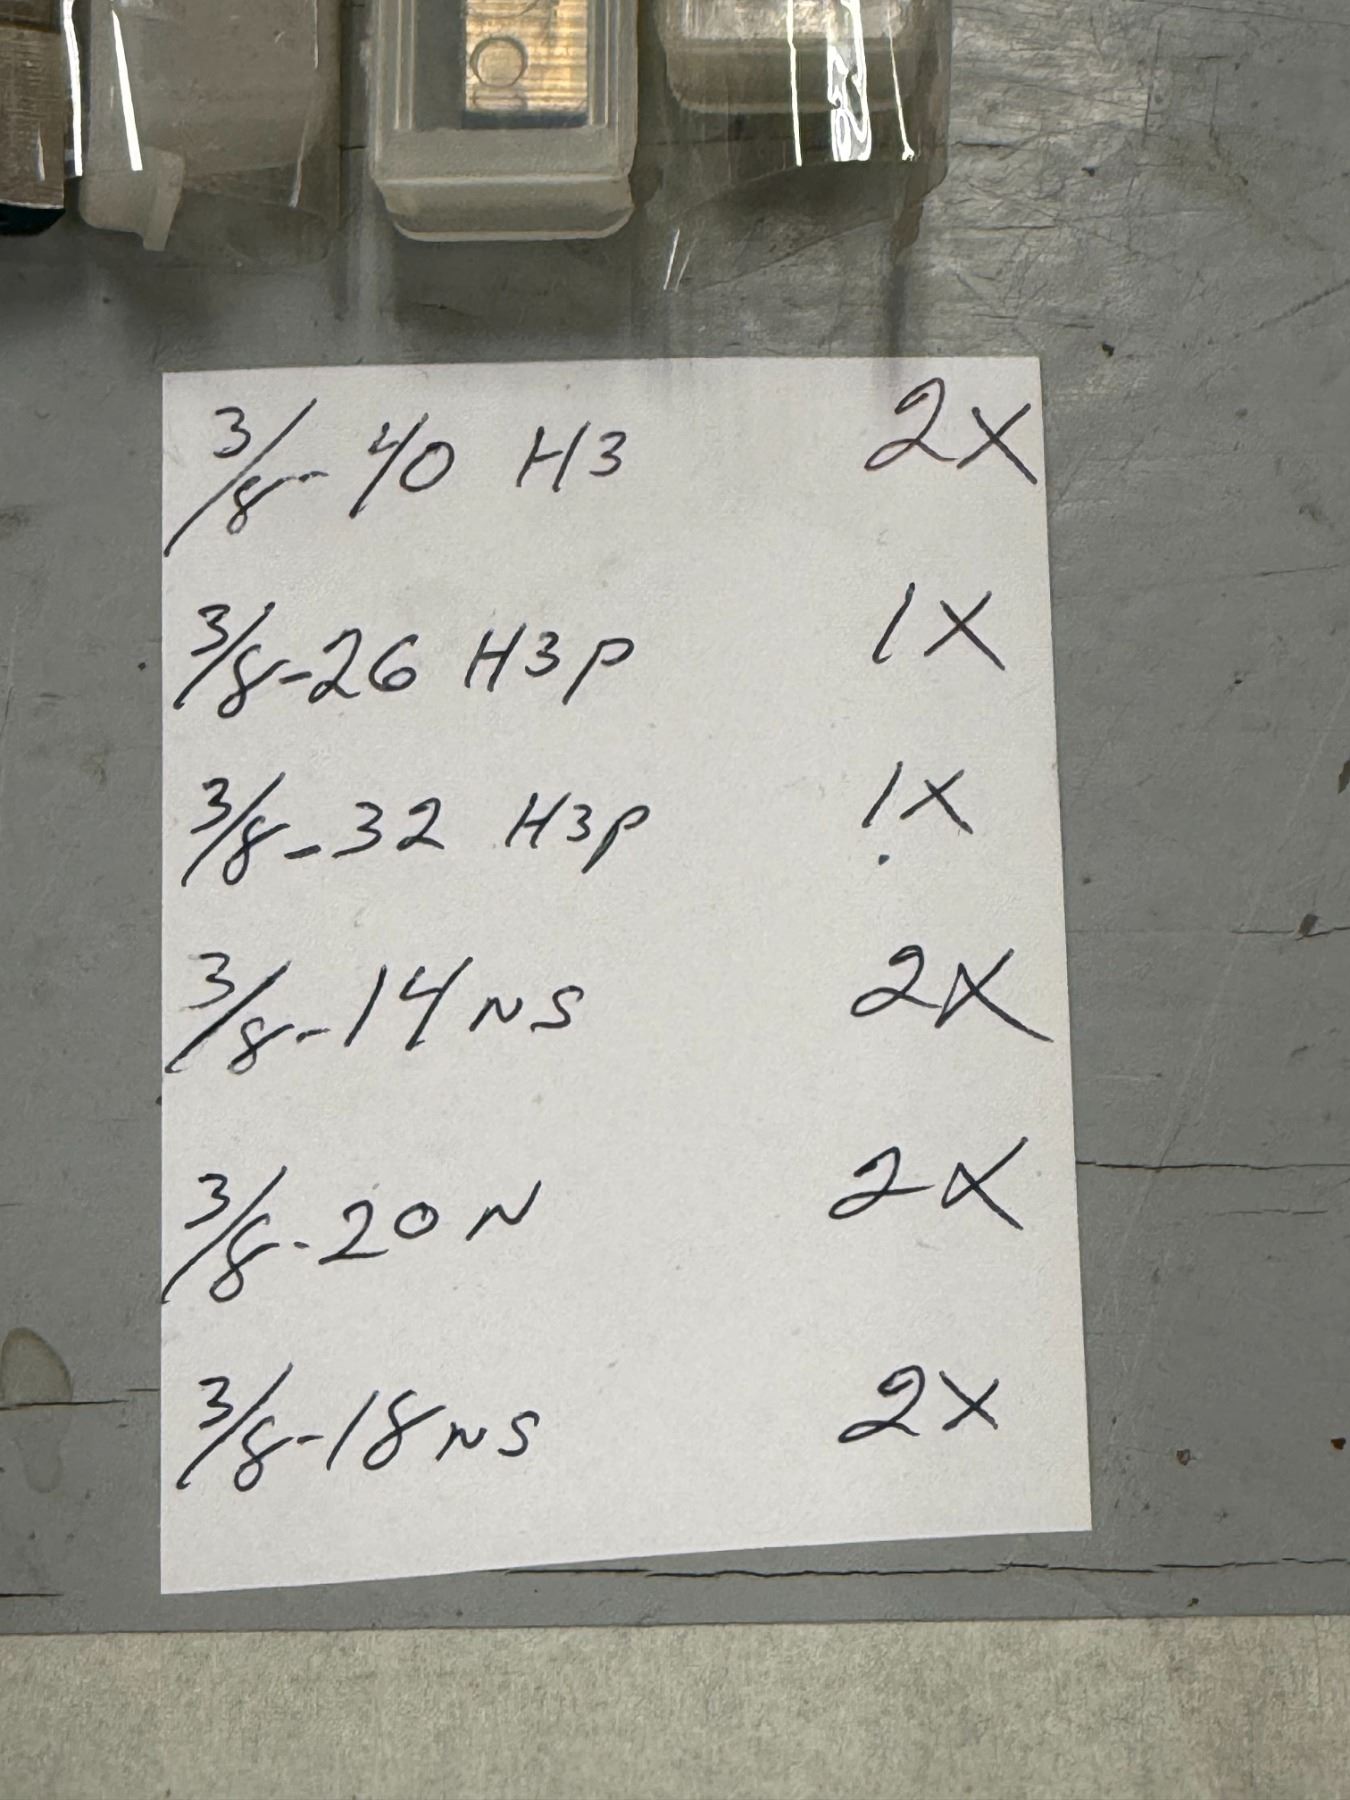 3/8-40 H3 2X
3/8-26 H3P 1X
3/8-32 H3P 1X
3/8-14 NS 2X
3/8-20 N 2X
3/8-18 NS 2X